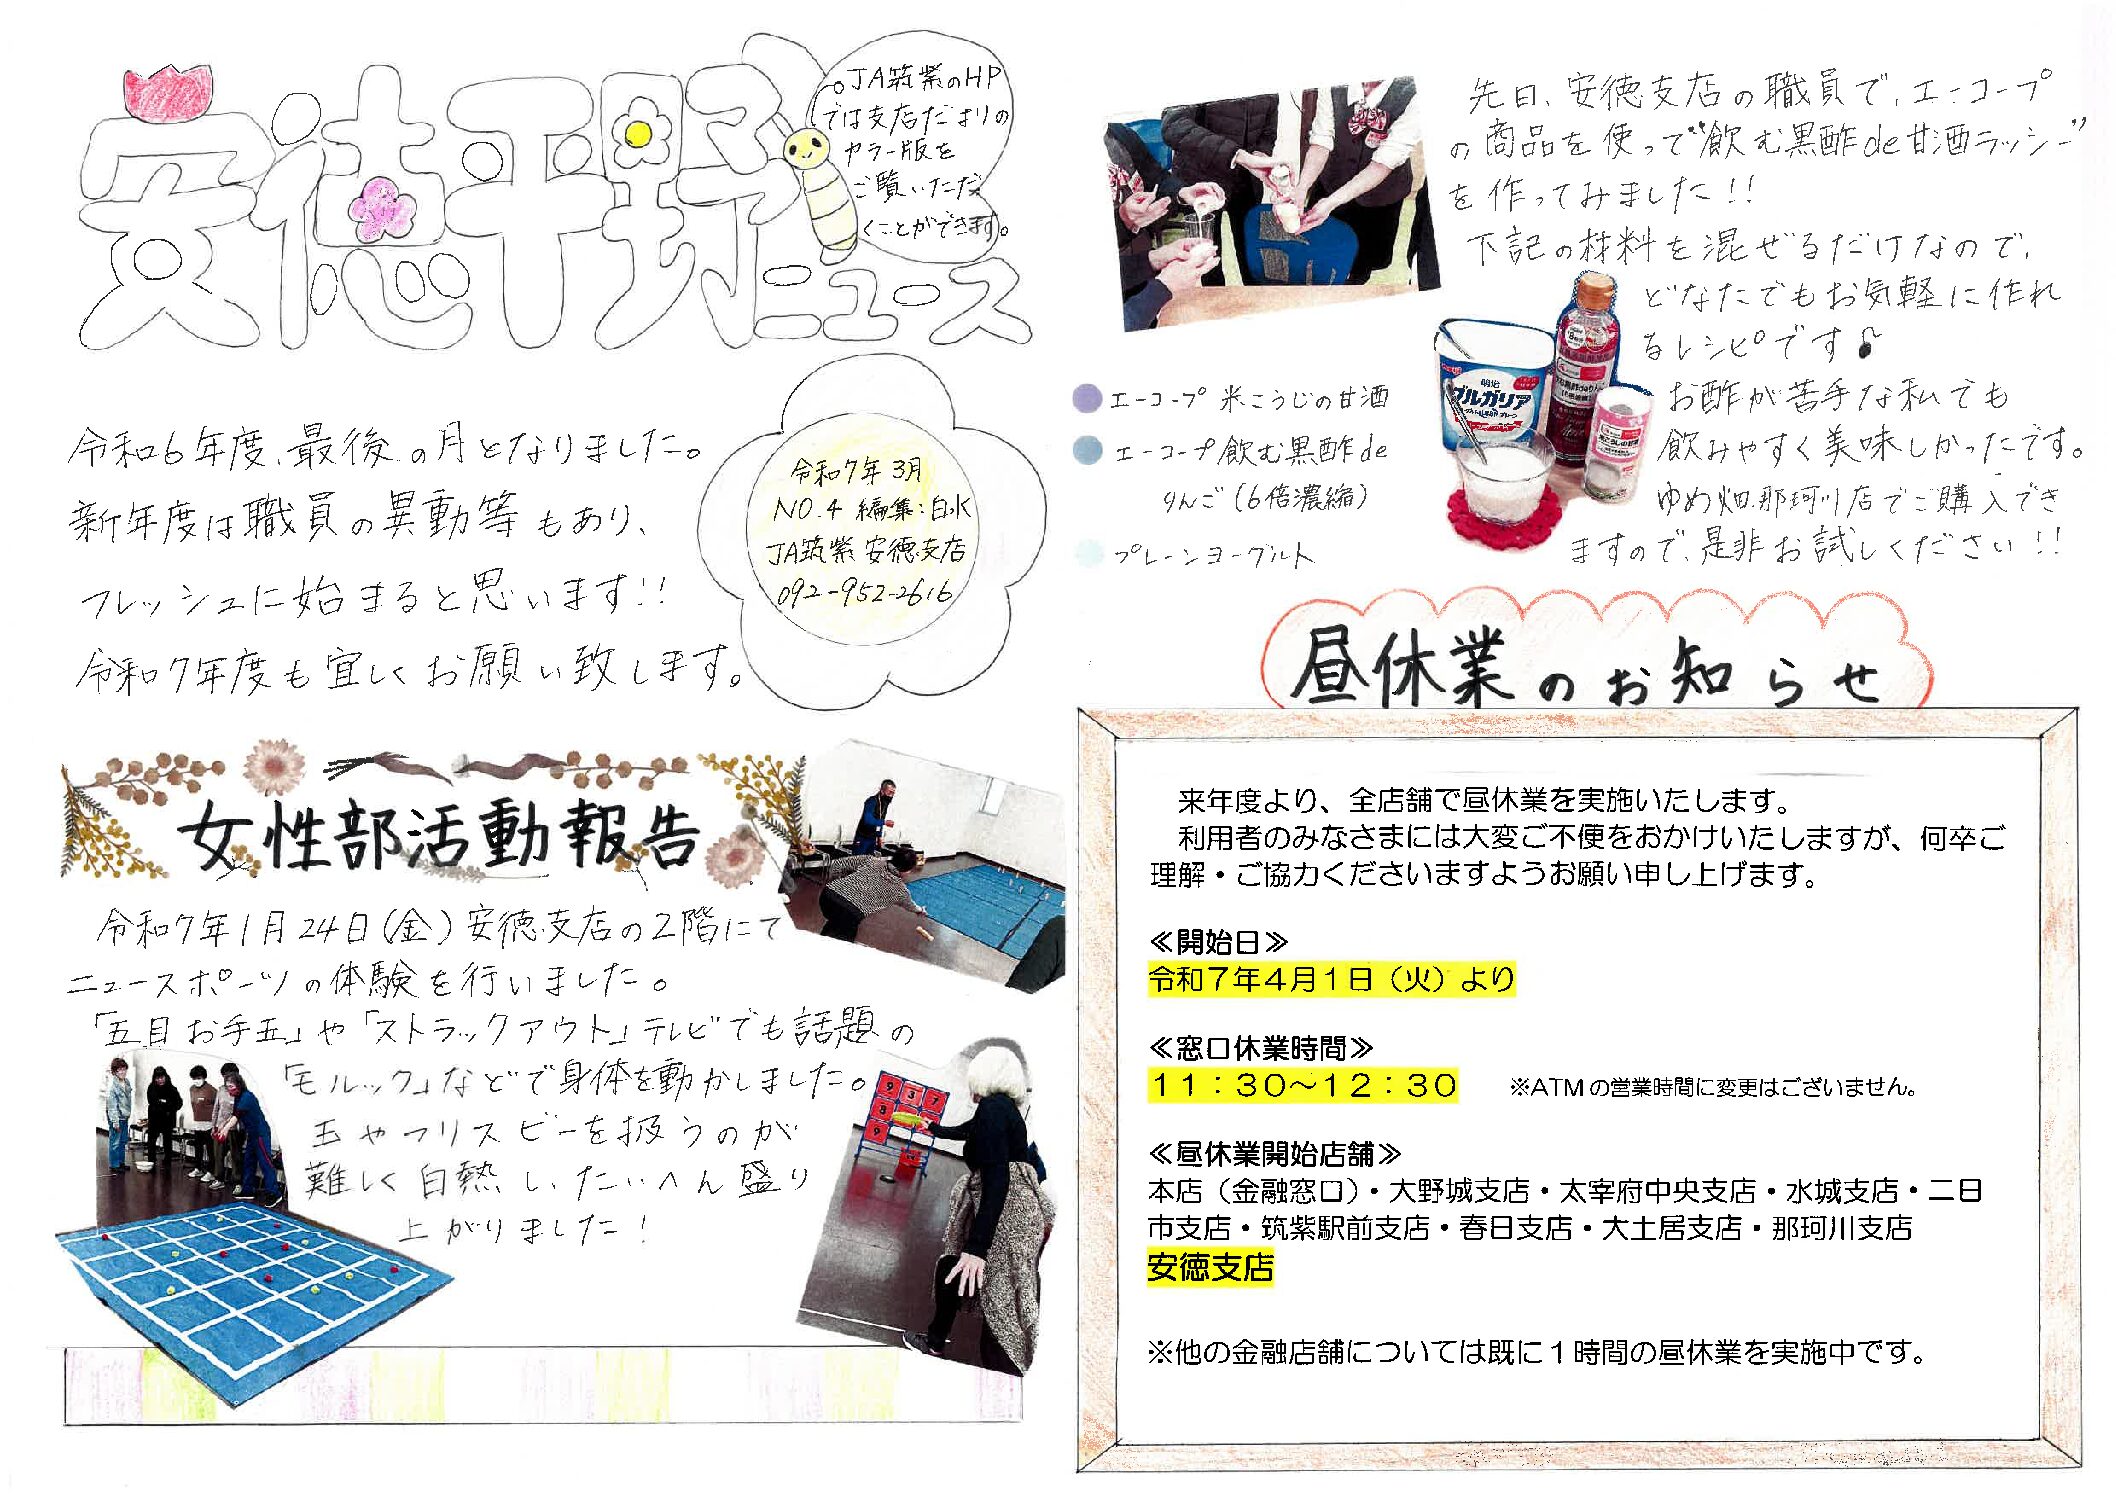 安徳平野ニュース
○JA筑紫のHP
では支店だよりの
カラー版を
ご覧いただ
くことができます。
令和7年3月
NO.4 編集:白水
JA筑紫 安徳支店
092-952-2616
令和6年度、最後の月となりました。
新年度は職員の異動等もあり、
フレッシュに始まると思います!!
令和7年度も宜しくお願い致します。
女性部活動報告
令和7年1月24日(金)安徳支店の2階にて
ニュースポーツの体験を行いました。
「五目お手玉」や「ストラックアウト」テレビでも話題の
「モルック」などで身体を動かしました。
玉やフリスビーを扱うのが
難しく白熱し、たいへん盛り
上がりました!
9 3 7
8
9
先日、安徳支店の職員で、エーコープ
の商品を使って"飲む黒酢de甘酒ラッシー"
を作ってみました!!
下記の材料を混ぜるだけなので、
どなたでもお気軽に作れ
るレシピです♪
お酢が苦手な私でも
飲みやすく美味しかったです。
ゆめ畑那珂川店でご購入でき
ますので、是非お試しください!!
エーコープ 米こうじの甘酒
エーコープ飲む黒酢de
りんご(6倍濃縮)
プレーンヨーグルト
明治
ブルガリア
昼休業のお知らせ
来年度より、全店舗で昼休業を実施いたします。
利用者のみなさまには大変ご不便をおかけいたしますが、何卒ご
理解・ご協力くださいますようお願い申し上げます。
≪開始日≫
令和7年4月1日(火)より
≪窓口休業時間≫
11:30~12:30 ※ATMの営業時間に変更はございません。
≪昼休業開始店舗≫
本店(金融窓口)・大野城支店・太宰府中央支店・水城支店・二日
市支店・筑紫駅前支店・春日支店・大土居支店・那珂川支店
安徳支店
※他の金融店舗については既に1時間の昼休業を実施中です。